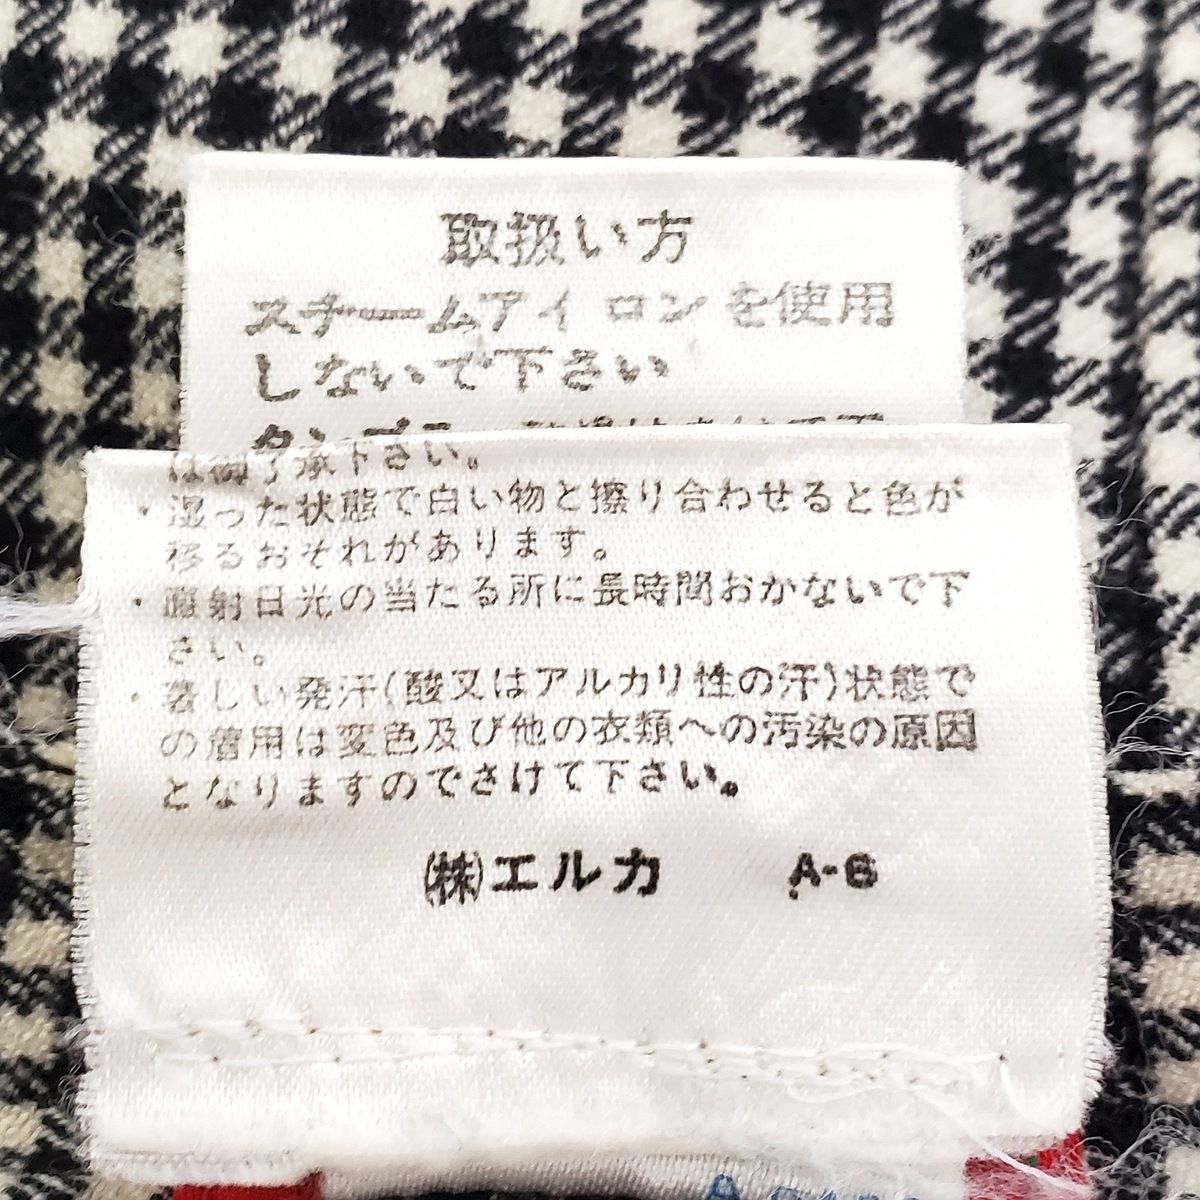 取扱い方
スチームアイロンを使用
しないで下さい
は御了承下さい。
・湿った状態で白い物と擦り合わせると色が
移るおそれがあります。
・直射日光の当たる所に長時間おかないで下
さい。
・著しい発汗(酸又はアルカリ性の汗)状態で
の着用は変色及び他の衣類への汚染の原因
となりますのでさけて下さい。
㈱エルカ A-6